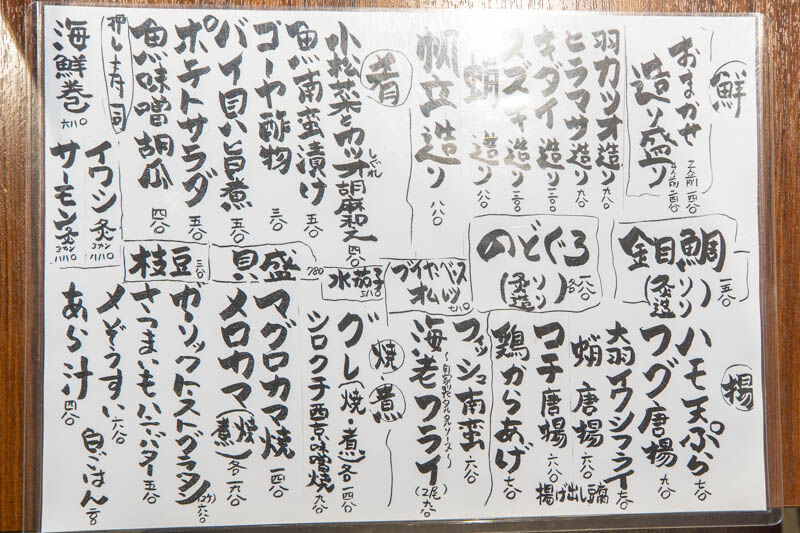 鮮
おまかせ
造り盛り
2人前 一四〇
羽カツオ造り 九八〇
ヒラマサ造り 九八〇
キダイ造り
メズキ造り
蛸 造り 八八〇
帆立造り 八八〇
肴
小松菜とカツオ胡麻和え 四八〇
しぐれ
魚南蛮漬け 五八〇
ゴーヤ酢物 三八〇
バイ貝旨煮 五八〇
ポテトサラダ 五八〇
魚味噌胡瓜 四八〇
押し寿司
海鮮巻 六八〇
イワシ炙 3カン
サーモン炙 3カン
金目鯛
(炙リ
造リ)
のどぐろ
(炙リ
造リ)
ブイヤベース
オムレツ 七八〇
水茄子 三八〇
貝盛 780
枝豆 三八〇
揚
ハモ天ぷら 七八〇
フグ唐揚 九八〇
大羽イワシフライ 七八〇
蛸唐揚 六八〇
揚げ出し豆腐
コチ唐揚 六八〇
鶏からあげ 七八〇
フィッシュ南蛮 六八〇
〜自家製タルタルソース〜
海老フライ (2尾) 九八〇
焼・煮
グレ(焼・煮)各一四八〇
シロクチ西京味噌焼 九八〇
マグロカマ焼 一四八〇
メロカマ(焼
煮)各一六八〇
ガーリックトーストグラタン (2ケ) 六八〇
さつまいもハニーバター 五八〇
〆ぞうすい 六八〇
白ごはん
あら汁 四八〇